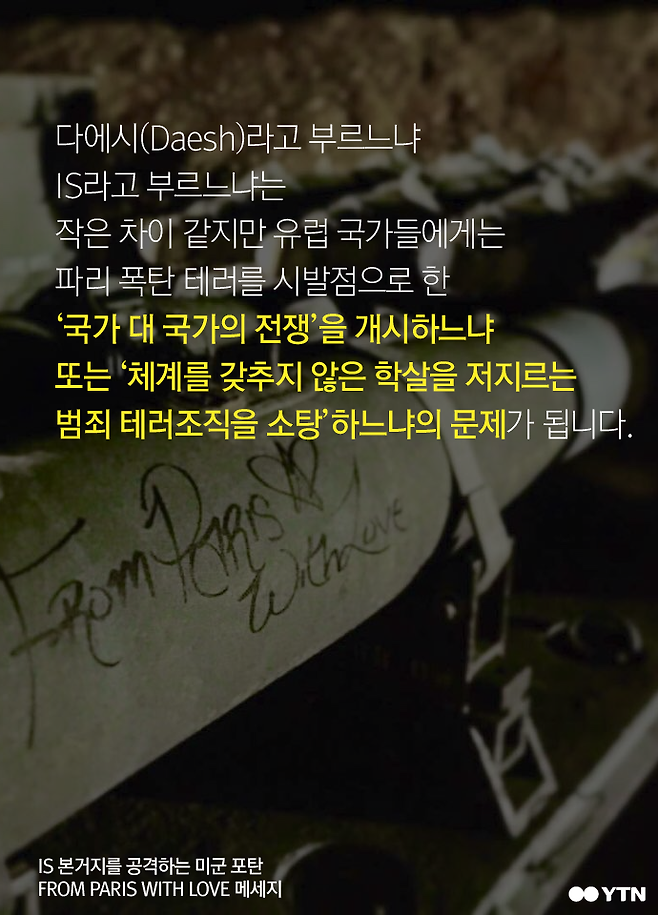 다에시(Daesh)라고 부르느냐
IS라고 부르느냐는
작은 차이 같지만 유럽 국가들에게는
파리 폭탄 테러를 시발점으로 한
‘국가 대 국가의 전쟁’을 개시하느냐
또는 ‘체계를 갖추지 않은 학살을 저지르는
범죄 테러조직을 소탕’하느냐의 문제가 됩니다.
FROM PARIS
With Love
IS 본거지를 공격하는 미군 포탄
FROM PARIS WITH LOVE 메세지
YTN